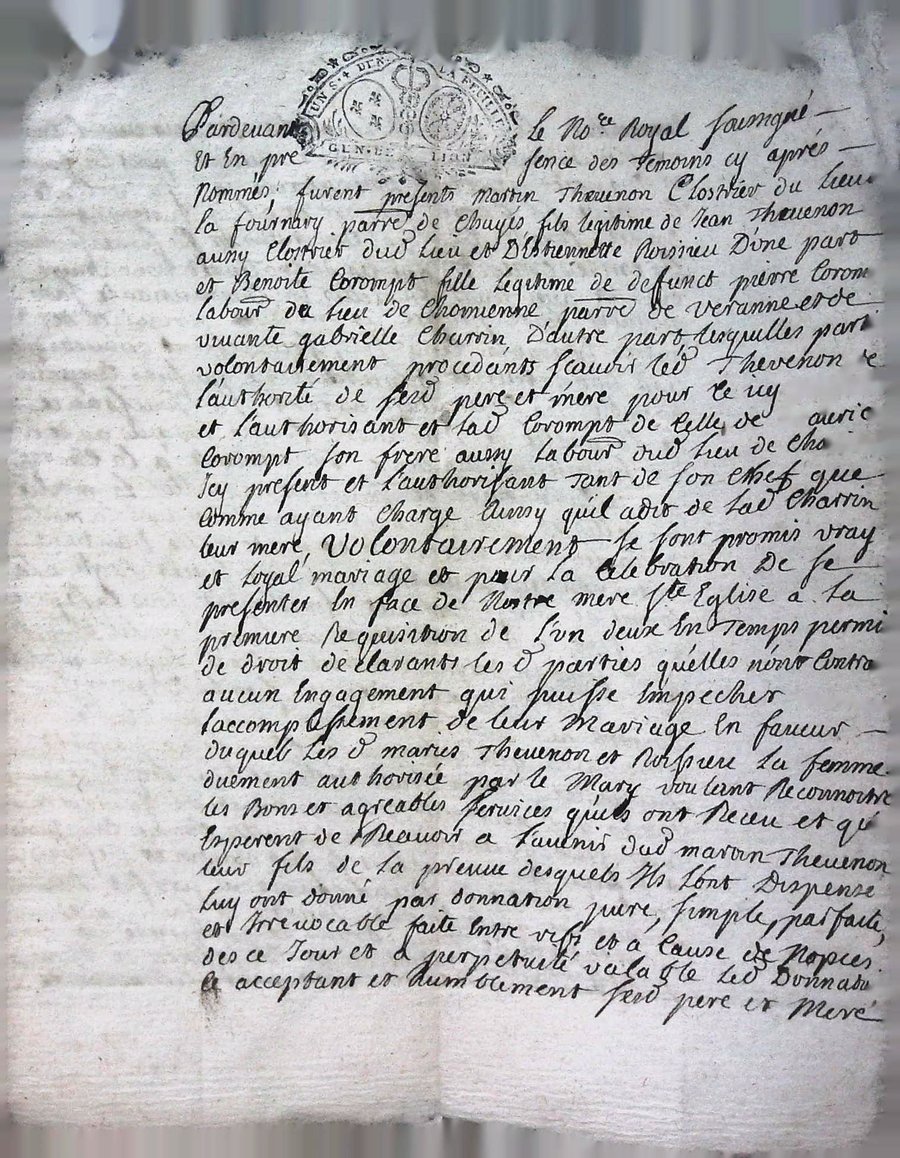 UN S. 4 DEN. LA FEUILLE
GEN. DE LION
Pardevant le No.re Royal soussigné
Et En presence des temoins cy aprés
Nommés, furent presents Martin Thevenon Clostrier du lieu
la fournary parre de Chuyes fils legitime de Jean Thevenon
aussy Clostrier dud lieu et D'Estiennette Roissieu D'une part
et Benoite Corompt fille Legitime de deffunct pierre Corom
labour du lieu de Chomienne parre de Veranne et de
vivante gabrielle Charrin D'autre part, lesquelles parti
volontairement procedants scavoir led Thevenon
l'authorité de sesd pere et mere pour ce icy
et l'authorisant et lad Corompt de Celle de
Corompt son frere aussy labour dud lieu de Cho
Icy present et l'authorisant Tant de son Chef que
Comme ayant Charge Ainsy qu'il a dit de lad Charrin
leur mere, Volontairement se sont promis vray
et loyal mariage et pour la Celebration De se
presenter En face de Nostre mere ste Eglise a la
premiere Requisition de l'un deux En Temps permi
de droit declarants les d parties qu'elles n'ont Contra
aucun Engagement qui puisse Impecher
l'accomplissement de leur Mariage En faveur
duquel les d mariés Thevenon et Roissieu la femme
duement authorisée par le Mary voulant Reconnoitre
les Bons et agreables services qu'ils ont Receu et qu'
Esperent de Recevoir a l'avenir dud martin Thevenon
leur fils de la preuve desquels Ils l'ont Dispensé
luy ont donné par donnation pure, simple, parfaite,
et Irrevocable faite Entre vifs et a Cause de Nopces
des ce Jour et a perpetuité valable led Donnatai
Ce acceptant et humblement sesd pere et Mere